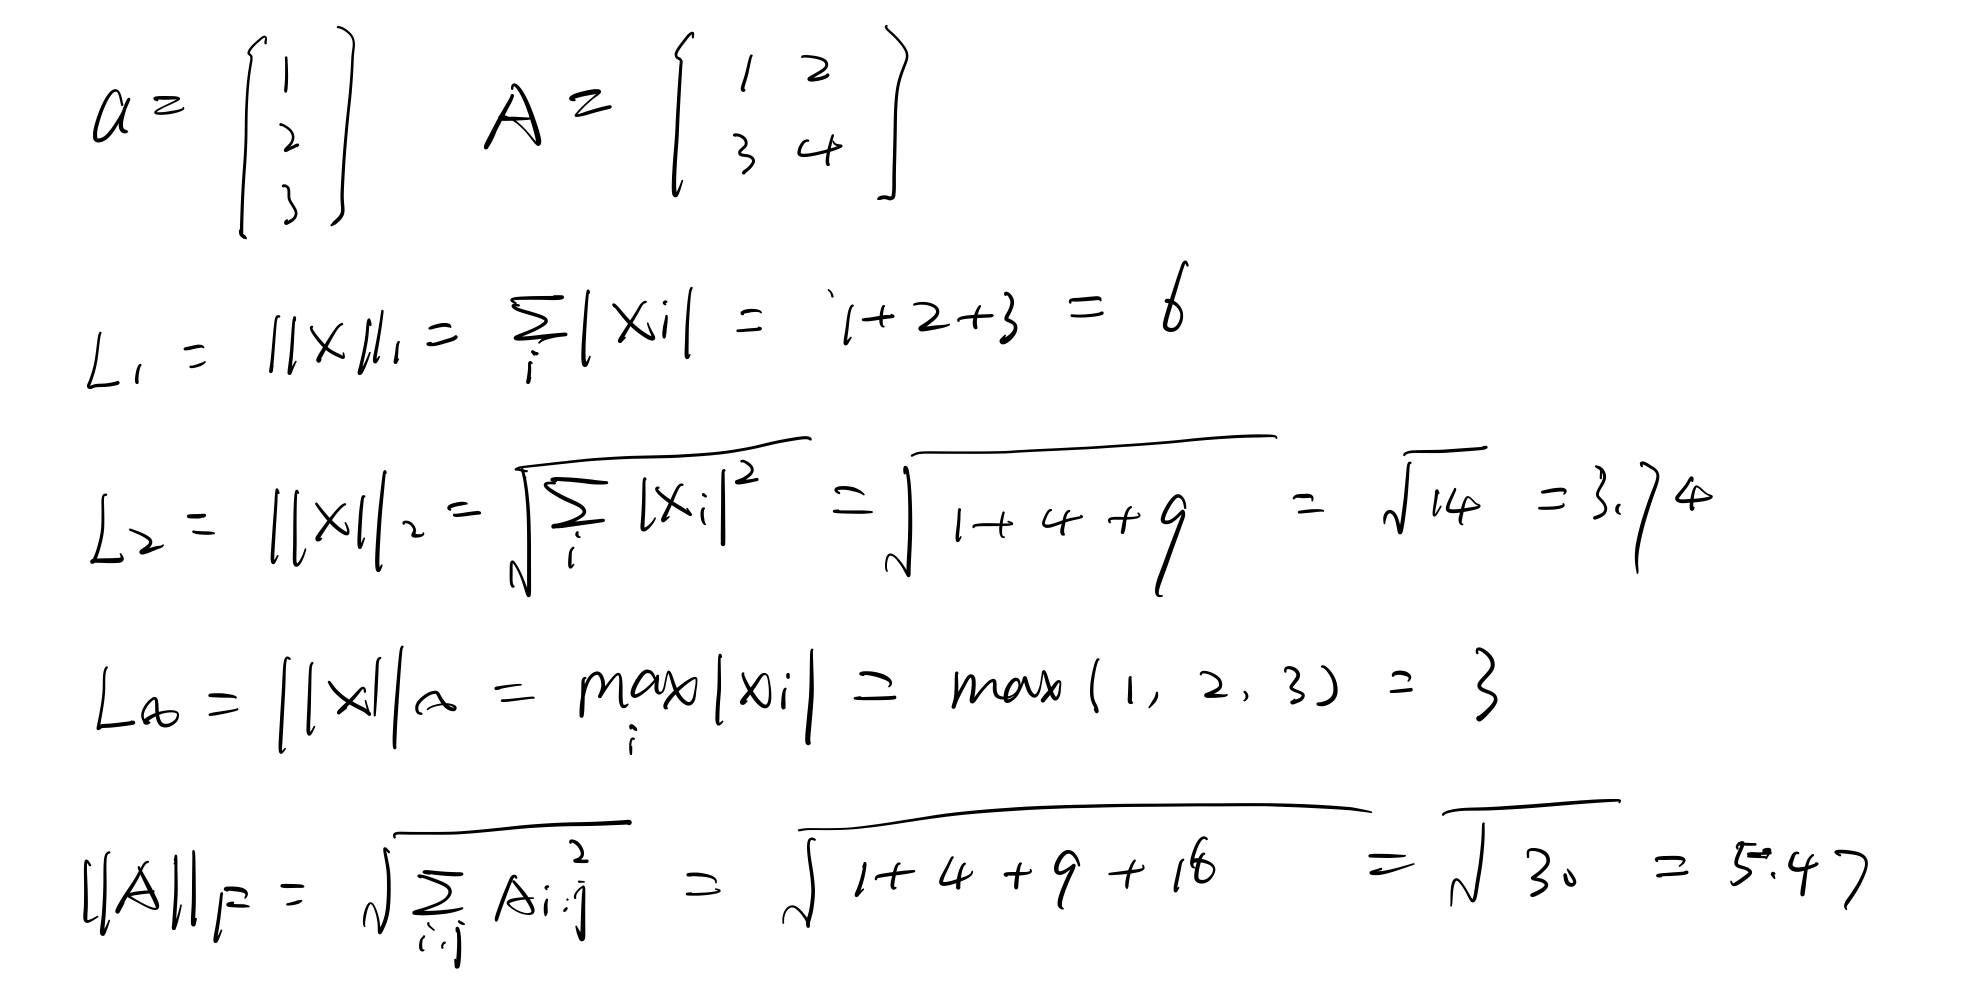 a = [1 2 3] A = [1 2 3 4]
L₁ = ||X||₁ = ∑ᵢ|Xi| = 1+2+3 = 6
L₂ = ||X||₂ = √(∑ᵢ |Xi|²) = √(1+4+9) = √14 = 3.74
L∞ = ||X||∞ = maxᵢ|Xi| = max(1, 2, 3) = 3
||A||F = √(∑i,j Ai,j²) = √(1+4+9+16) = √30 = 5.47